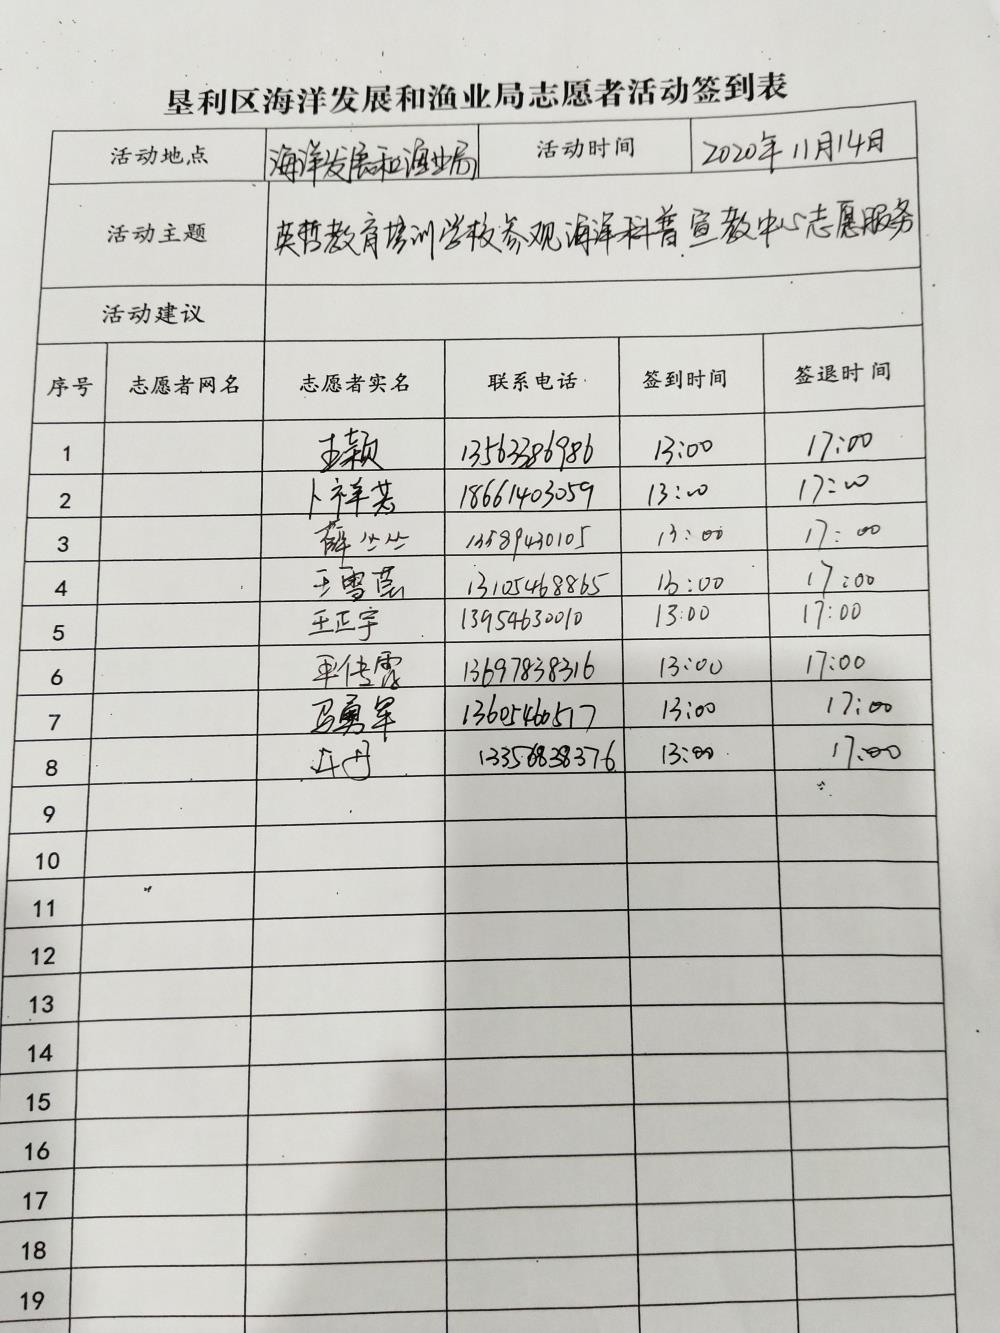 垦利区海洋发展和渔业局志愿者活动签到表
活动地点 海洋发展和渔业局 活动时间 2020年11月14日
活动主题 英哲教育培训学校参观海洋科普宣教中心志愿服务
活动建议
序号 志愿者网名 志愿者实名 联系电话 签到时间 签退时间
1 王颖 13563386986 13:00 17:00
2 卜祥茗 18661403059 13:00 17:00
3 薛丛丛 13589430105 13:00 17:00
4 王雪莲 13105468865 13:00 17:00
5 王正宇 13954630010 13:00 17:00
6 平传霞 13697838316 13:00 17:00
7 马勇军 13605460517 13:00 17:00
8 13356838376 13:00 17:00
9
10
11
12
13
14
15
16
17
18
19